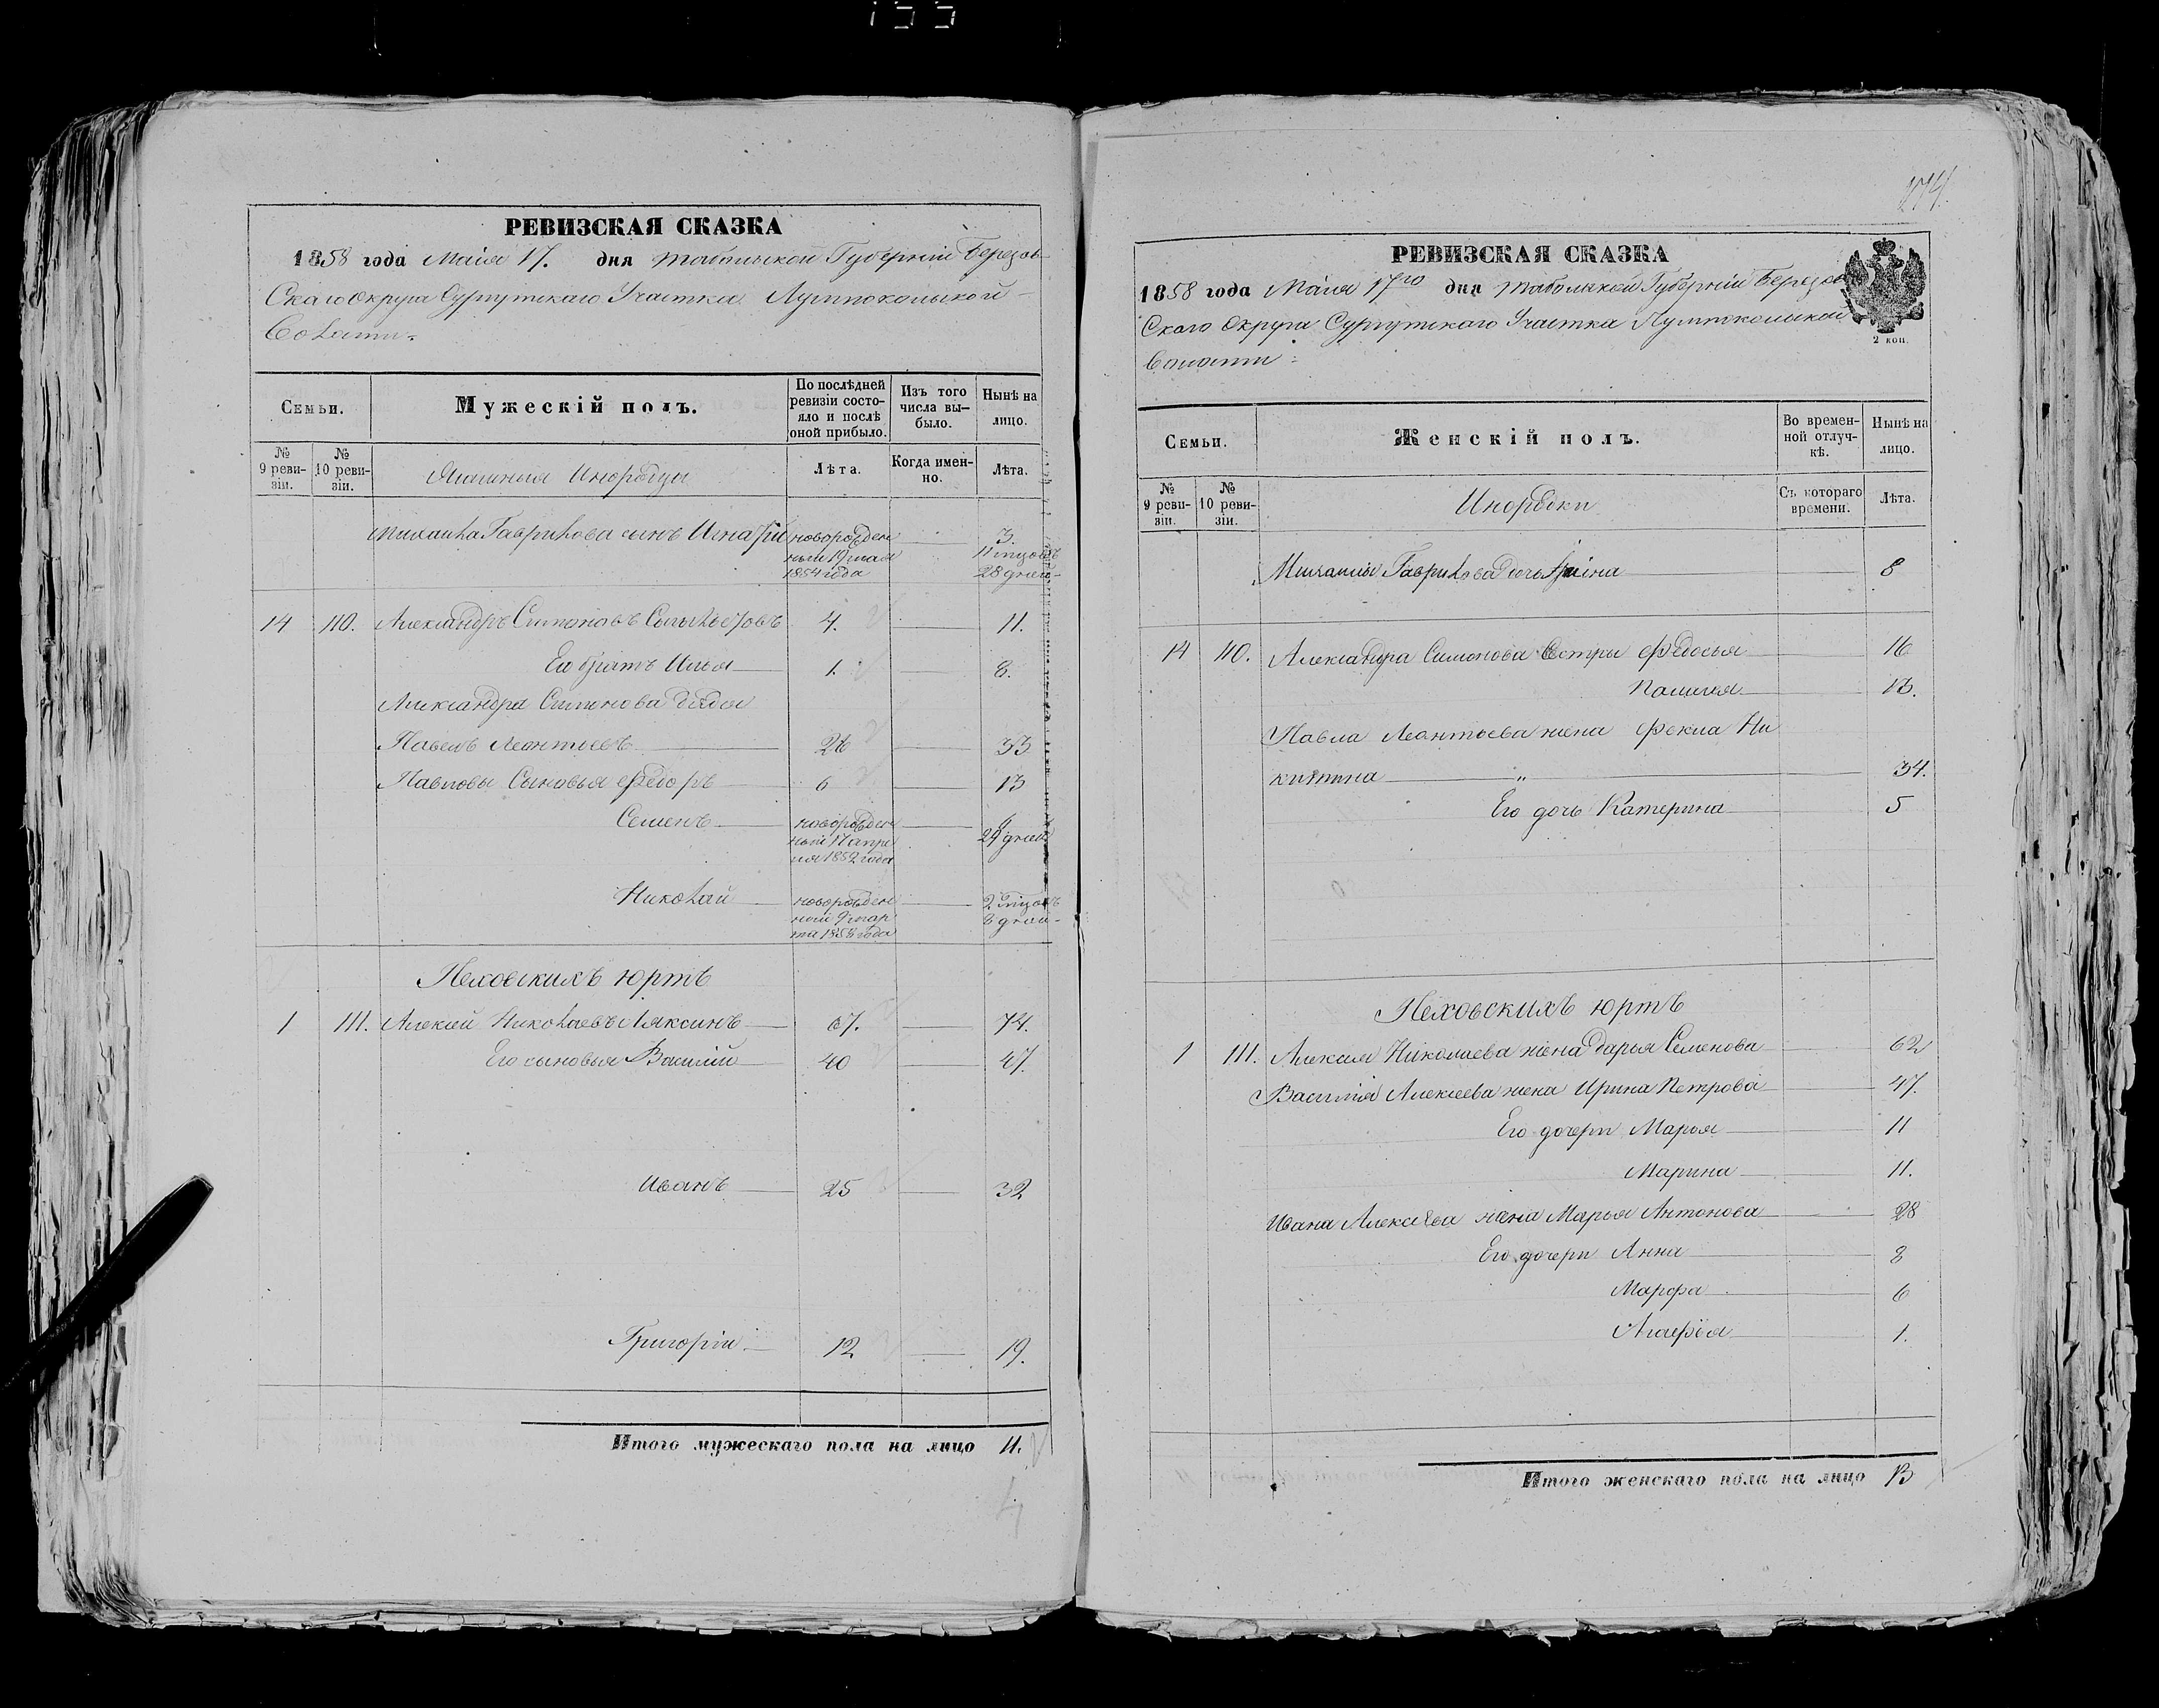 155
РЕВИЗСКАЯ СКАЗКА
1858 года Маія 17. дня Тобольской Губерніи Березов-
скаго округа Сургутскаго Участка Лумпокольской
волости.
Семьи.
Мужескій полъ.
По послѣдней
ревизіи состо-
яло и послѣ
оной прибыло.
Изъ того
числа вы-
было.
Нынѣ на
лицо.
№
9 реви-
зіи.
№
10 реви-
зіи.
Инородцы
Лѣта.
Когда имен-
но.
Лѣта.
Михаила Гаврилова сынъ
новорожден
ный 19 мая
1854 года
3.
11 мцовъ
28 дней
14 110. Александръ Симоновъ 4. 11.
Его братъ Илья 1. 8.
Александра Симонова дядя
Павелъ Леонтьевъ 26 33
Павловы Сыновья Федоръ 6 13
Семенъ
новорожден
ный 17 апре
ля 1852 года
29 дней
Николай
новорожден
ный 9 мар
та 1858 года
2 мцовъ
8 дней
Пеховскихъ юртъ
1 111. Алексей Николаевъ Ляксинъ 67. 74.
Его сыновья Василій 40 47.
Иванъ 25 32
Григорій 12 19.
Итого мужескаго пола на лицо 11.
4
174.
РЕВИЗСКАЯ СКАЗКА
1858 года Маія 17го дня Тобольской Губерніи Березов
скаго Округа Сургутскаго Участка Лумпокольской
волости
2 коп.
Семьи.
Женскій полъ.
Во времен-
ной отлуч-
кѣ.
Нынѣ на
лицо.
№
9 реви-
зіи.
№
10 реви-
зіи.
Инородки
Съ котораго
времени.
Лѣта.
Михаилы Гаврилова дочь 8
14 110. Александра Симонова Сестры Федосья 16
13.
Павла Леонтьева жена Фекла Ни
китина „ 34.
Его дочь Катерина 5
Пеховскихъ юртъ
1 111. Алексея Николаева жена Дарья Семенова 62
Василія Алексеева жена Ирина Петрова 47.
Его дочери Марья 11
Марина 11.
Ивана Алексѣева жена Марья Антонова 28
Его дочери Анна 8
Марфа 6
Агафія 1.
Итого женскаго пола на лицо 13